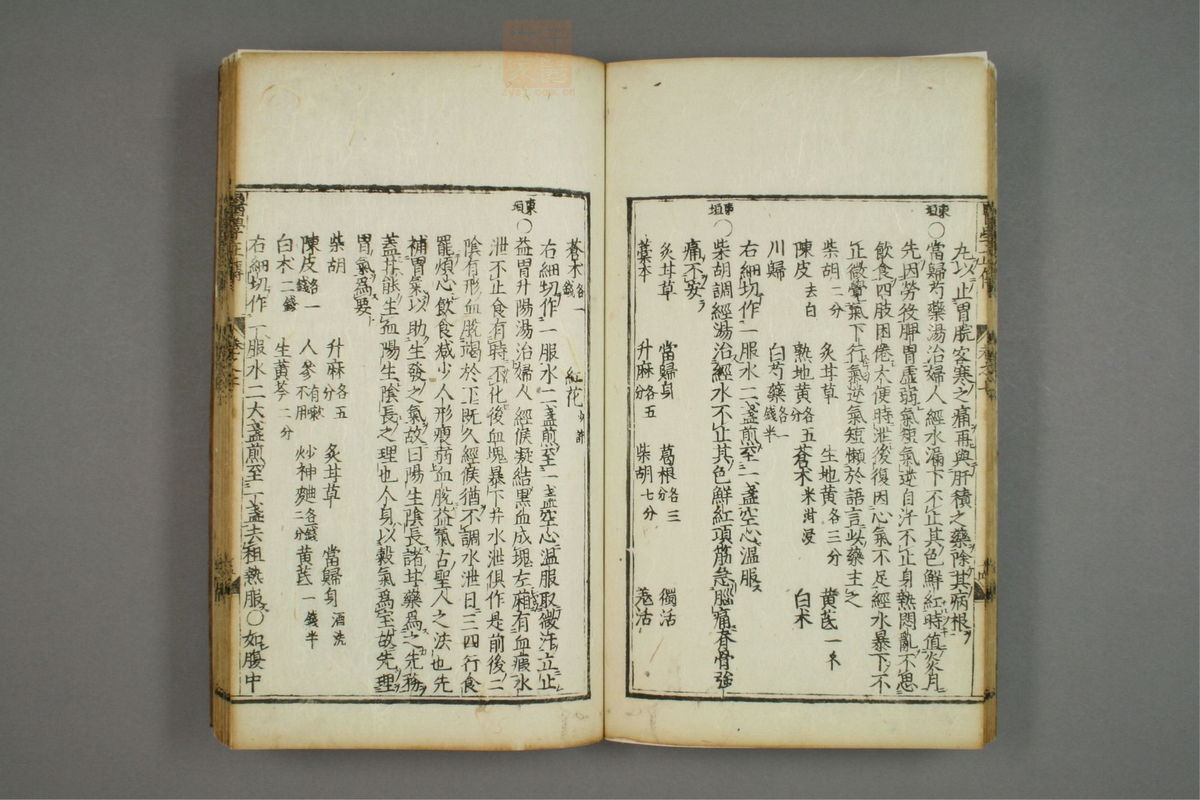 丸以止胃脘客寒之痛再與肝積之藥除其病根
東垣
○當歸芍藥湯治婦人經水漏下不止其色鮮紅時值炎月
先因勞役脾胃虛弱氣短氣逆自汗不止身熱悶亂不思
飲食四肢困倦大便時泄後復因心氣不足經水暴下不
止微覺氣下行氣逆氣短懶於語言此藥主之
柴胡二分 炙甘草 生地黃各三分 黃芪一
陳皮去白 熟地黃各五分 蒼朮米泔浸 白朮
川歸 白芍藥各一錢半
右細切作一服水二盞煎至一盞空心溫服
東垣
○柴胡調經湯治經水不止其色鮮紅項筋急腦痛脊骨強
痛不安
炙甘草 當歸身 葛根各三分 獨活
藁本 升麻各五分 柴胡七分 羌活
蒼朮各一錢 紅花少許
右細切作一服水二盞煎至一盞空心溫服取微汗立止
東垣
○益胃升陽湯治婦人經候凝結黑血成塊左廂有血瘕水
泄不止食有時不化後血塊暴下并水泄俱作是前後二
陰有形血脫竭於下既久經候猶不調水泄日三四行食
罷煩心飲食減少人形瘦弱血脫益氣古聖人之法也先
補胃氣以助生發之氣故曰陽生陰長諸甘藥為之先務
蓋甘能生血陽生陰長之理也人身以穀氣為宝故先理
胃氣為要
柴胡 升麻各五分 炙甘草 當歸身酒洗
陳皮各一錢 人參有嗽不用 炒神麯各二分 黃芪一錢半
白朮二錢 生黃芩二分
右細切作一服水二大盞煎至一盞去粗熱服○如腹中